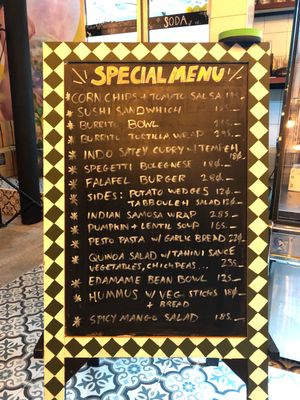 SODA
SPECIAL MENU
* CORN CHIPS + TOMATO SALSA
* SUSHI SANDWHICH
* BURRITO BOWL
* BURRITO TORTILLA WRAP 295.-
* INDO SATEY CURRY w/ TEMPEH
180
* SPEGETTI BOLEGNESE 180-
* FALAFEL BURGER 280-
* SIDES: POTATO WEDGES 120-
TABBOULEH SALAD 120-
* INDIAN SAMOSA WRAP 285-
* PUMPKIN + LENTIL SOUP 165-
* PESTO PASTA w/ GARLIC BREAD 220-
* QUINOA SALAD w/ TAHINI SAUCE
VEGETABLES, CHICKPEAS... 235-
* EDAMAME BEAN BOWL 125-
* HUMMUS w/ VEG STICKS 180-
+ BREAD
* SPICY MANGO SALAD 185.-